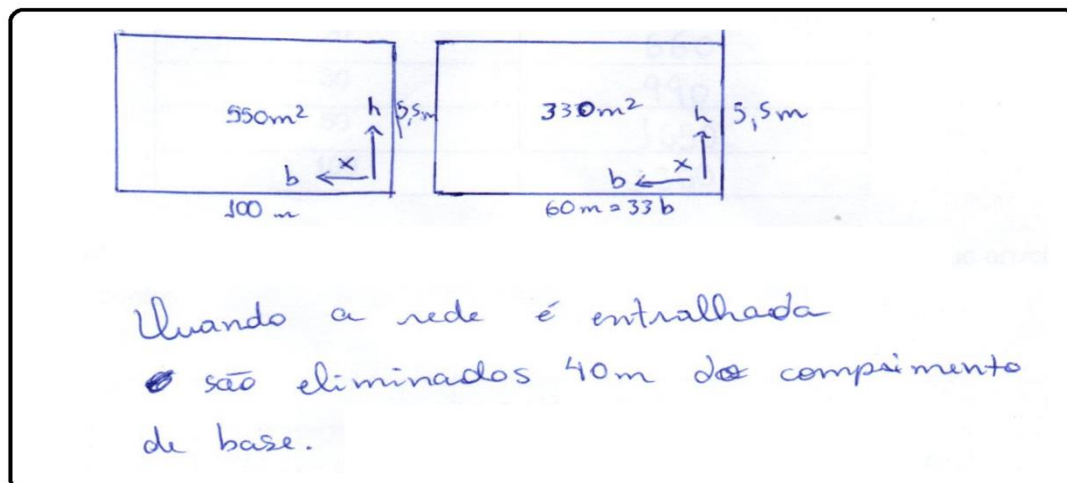 550m² h 5,5m
b x
100 m
330m² h 5,5m
b x
60m = 33b
Quando a rede é entralhada
são eliminados 40m do comprimento
de base.